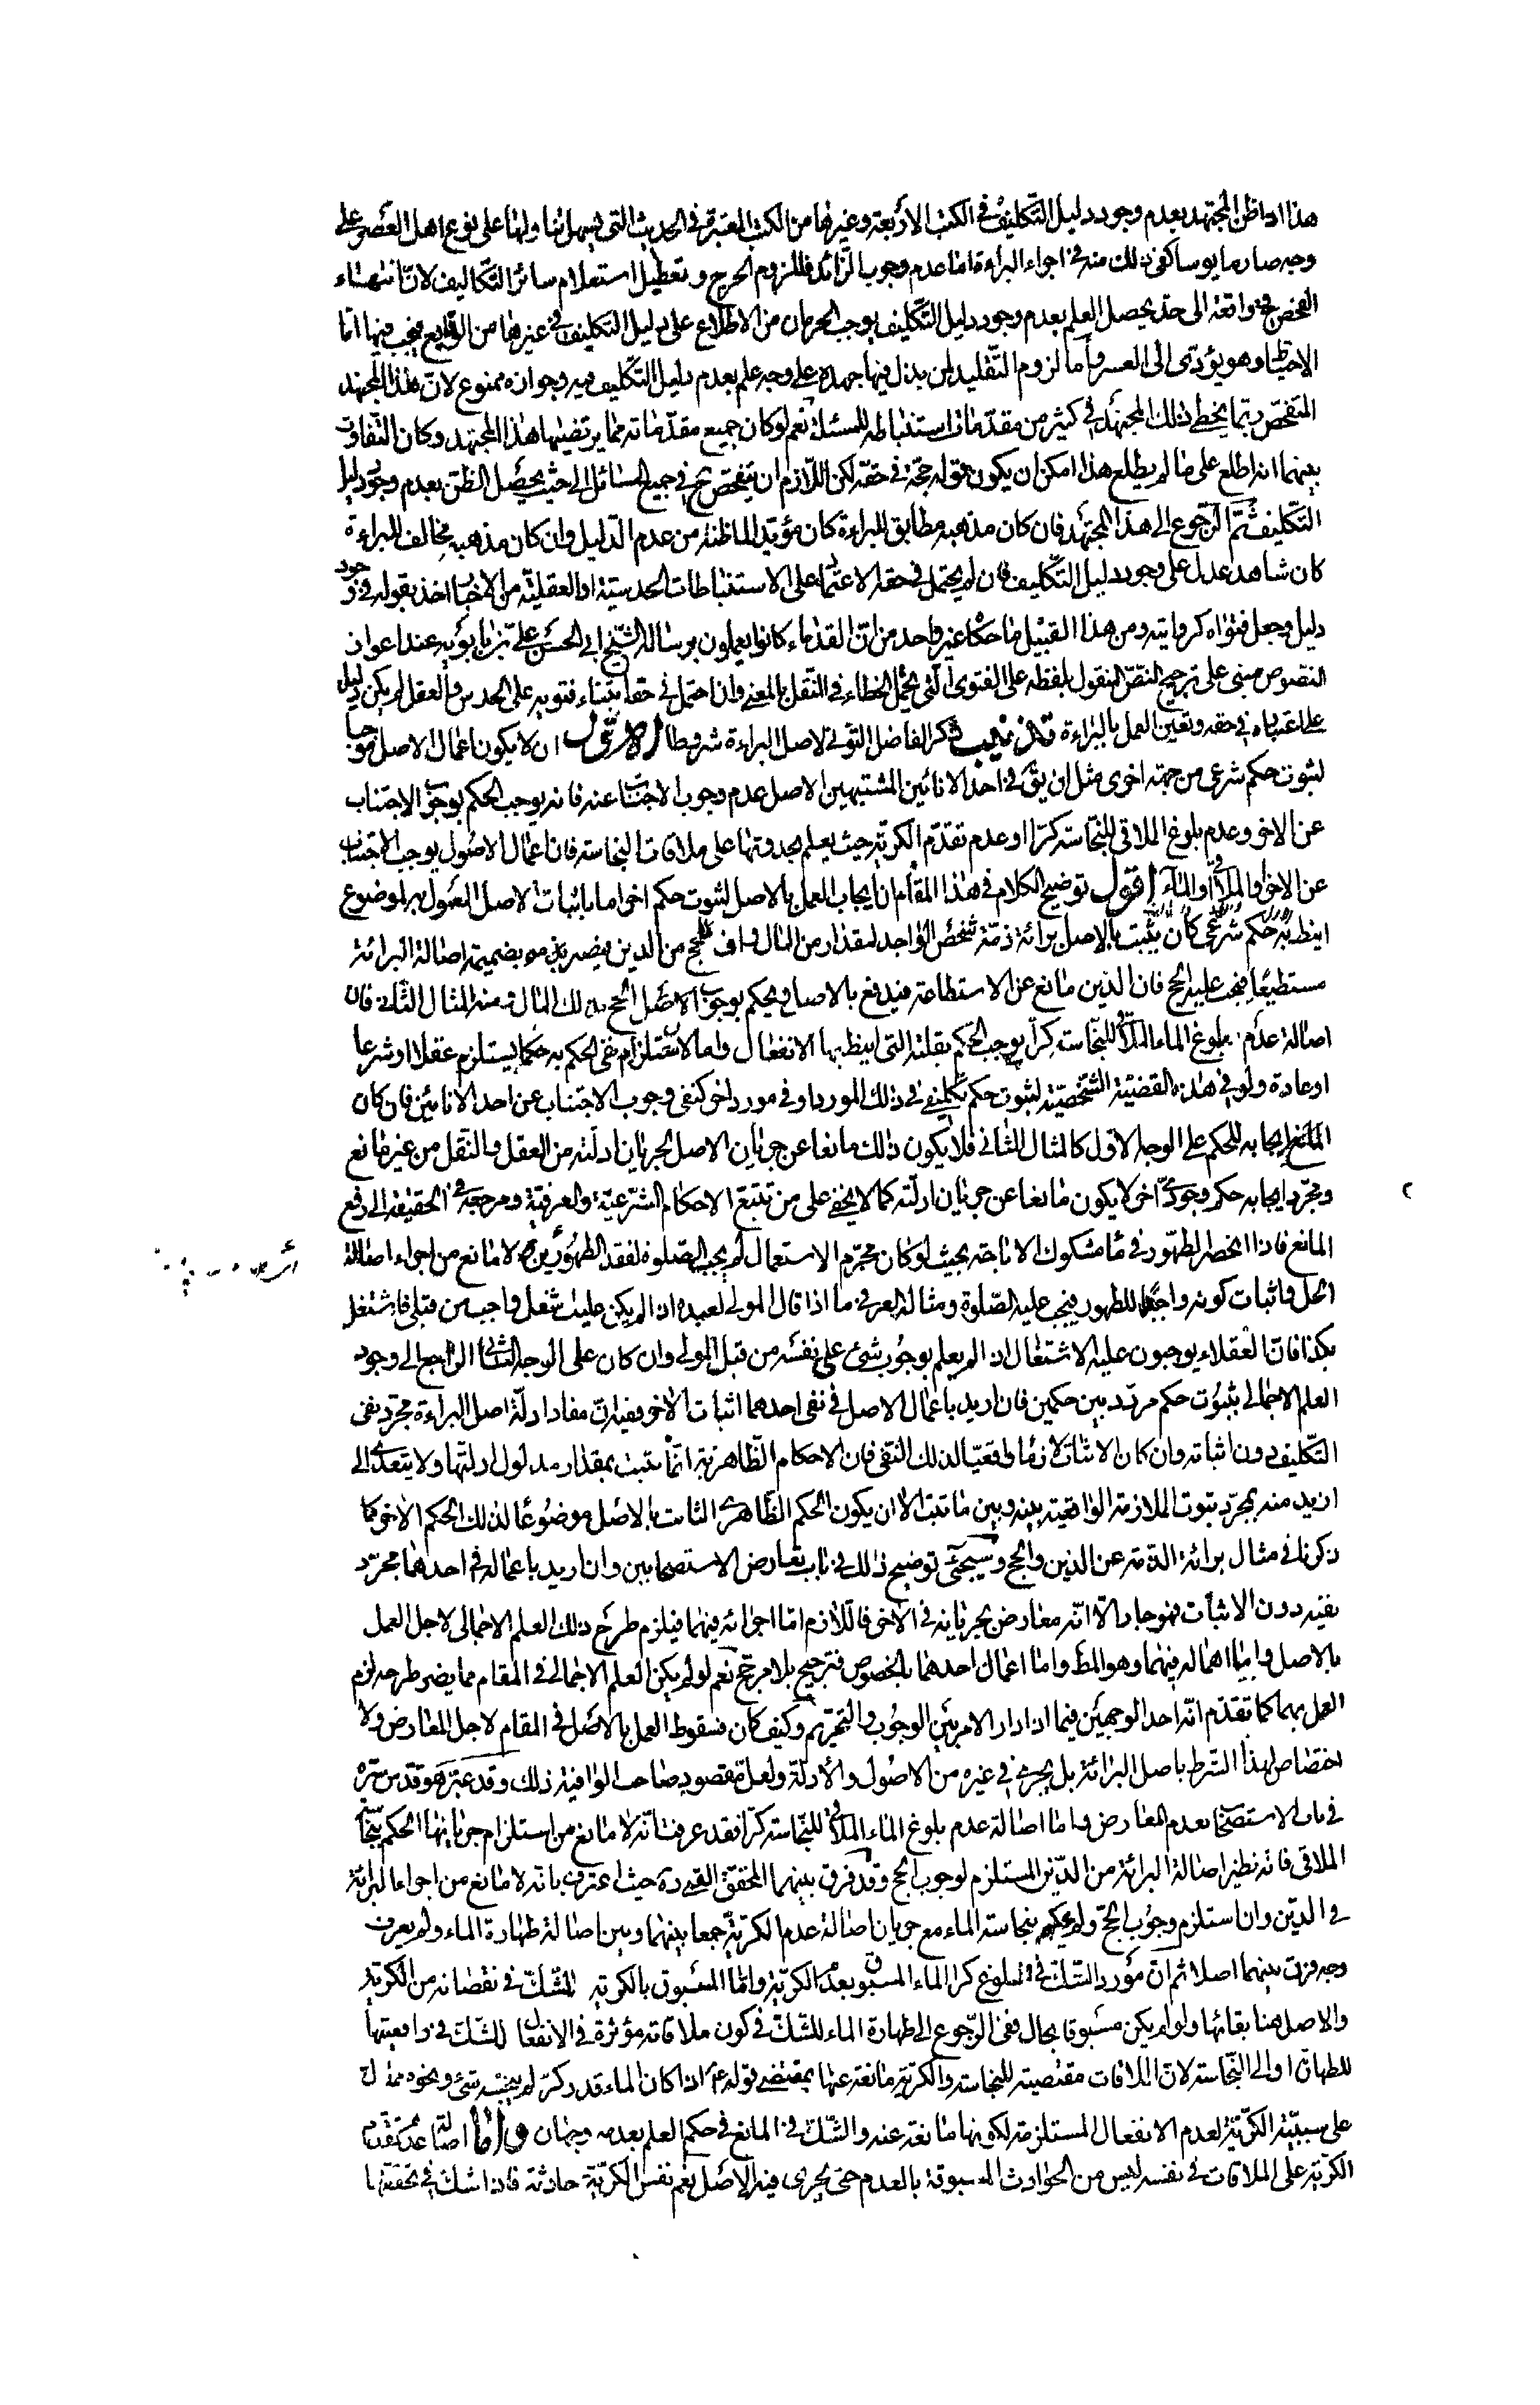 هذا اذا ظن المجتهد بعدم وجود دليل التكليف فى الكتب الأربعة وغيرها من الكتب المعتبرة فى الحديث التى يسهل تناولها على نوع اهل العصر على
وجه صار مايوسا كفى ذلك منه فى اجراء البراءة اما عدم وجوب الزائد فللزوم الحرج وتعطيل استعلام سائر التكاليف لان انتهاء
الفحص فى واقعة الى حد يحصل العلم بعدم وجود دليل التكليف يوجب الحرمان من الاطلاع على دليل التكليف فى غيرها من الوقايع فيجب فيها اما
الاحتياط وهو يؤدى الى العسر واما لزوم التقليد لمن بذل فيها جهده على وجه علم بعدم دليل التكليف فيه وجوازه ممنوع لان هذا المجتهد
المتفحص ربما يخطئ ذلك المجتهد فى كثير من مقدمات استنباطه للمسئلة نعم لو كان جميع مقدماته مما يرتضيها هذا المجتهد وكان التفاوت
بينهما انه اطلع على ما لم يطلع هذا امكن ان يكون قوله حجة فى حقه لكن اللازم ان يتفحص ح فى جميع المسائل الى حيث يحصل الظن بعدم وجود دليل
التكليف ثم الرجوع الى هذا المجتهد فان كان مذهبه مطابق للبراءة كان مؤيدا لما ظنه من عدم الدليل وان كان مذهبه مخالف البراءة
كان شاهد عدل على وجود دليل التكليف فان لم يحتمل فى حقه الاعتماد على الاستنباطات الحدسية او العقلية من الاخبار اخذ بقوله فى وجود
دليل وجعل فتواه كروايته ومن هذا القبيل ما حكاه غير واحد من ان القدماء كانوا يعملون برسالة الشيخ ابى الحسن على بن بابويه عند اعواز
النصوص مبنى على ترجيح النص المنقول بلفظه على الفتوى التى يحتمل الخطاء فى النقل بالمعنى وان احتمل فى حقه ابتناء فتويه على الحدس والعقل لم يكن دليل
على اعتباره فى حقه وتعين العمل بالبراءة تذنيب ذكر الفاضل التونى لاصل البراءة شروطا الاول ان لا يكون اعمال الاصل موجبا
لثبوت حكم شرعى من جهة اخرى مثل ان يق فى احد الانائين المشتبهين الاصل عدم وجوب الاجتناب عنه فانه يوجب الحكم بوجوب الاجتناب
عن الاخر وعدم بلوغ الملاقى للنجاسة كرا او عدم تقدم الكرية حيث يعلم بحدوثها على ملاقات النجاسة فان اعمال الاصول يوجب الاجتناب
عن الاخر او الملاقى او الماء اقول توضيح الكلام فى هذا المقام ان ايجاب العمل بالاصل لثبوت حكم اخر اما باثبات الاصل المعمول به لموضوع
انيط به حكم شرعى كان يثبت بالاصل برائة ذمة شخص الواجد لمقدار من المال واف بالحج من الدين فيصير بضميمة اصالة البرائة
مستطيعا فيجب عليه الحج فان الدين مانع عن الاستطاعة فيدفع بالاصل ويحكم بوجوب الحج بذلك المال ومنه المثال الثانى فان
اصالة عدم بلوغ الماء الملاقى للنجاسة كرا يوجب الحكم بقلته التى انيط بها الانفعال واما لاستلزام نفى الحكم به حكما يستلزم عقلا او شرعا
او عادة ولو فى هذه القضية الشخصية لثبوت حكم تكليفى فى ذلك المورد او فى مورد اخر كنفى وجوب الاجتناب عن احد الانائين فان كان
ايجابه للحكم على الوجه الاول كالمثال الثانى فلا يكون ذلك مانعا عن جريان الاصل لجريان ادلته من العقل والنقل من غير مانع
ومجرد ايجابه حكم وجودى اخر لا يكون مانعا عن جريان ادلته كما لا يخفى على من تتبع الاحكام الشرعية والعرفية ومرجعه فى الحقيقة الى رفع
المانع فاذا انحصر الطهور فى ماء مشكوك الاباحة بحيث لو كان محرم الاستعمال لم يجب الصلوة لفقد الطهورين فلا مانع من اجراء اصالة
الحل واثبات كونه واجدا للطهور فيجب عليه الصلوة ومثاله العرفى ما اذا قال المولى لعبده اذا لم يكن عليك شغل واجب من قبلى فاشتغل
بكذا فان العقلاء يوجبون عليه الاشتغال اذا لم يعلم بوجوب شئ على نفسه من قبل المولى وان كان على الوجه الثانى الراجع الى وجود
العلم الاجمالى بثبوت حكم مردد بين حكمين فان اريد باعمال الاصل فى نفى احدهما اثبات الاخر ففيه ان مفاد ادلة اصل البراءة مجرد نفى
التكليف دون اثباته وان كان الاثبات لازما واقعيا لذلك النفى فان الاحكام الظاهرية انما تثبت بمقدار مدلول ادلتها ولا يتعدى الى
ازيد منه بمجرد ثبوت الملازمة الواقعية بينه وبين ما ثبت الا ان يكون الحكم الظاهرى الثابت بالاصل موضوعا لذلك الحكم الاخر كما
ذكرنا فى مثال برائة الذمة عن الدين والحج وسيجئ توضيح ذلك فى باب تعارض الاستصحابين وان اريد باعماله فى احدهما مجرد
نفيه دون الاثبات فهو جار الا انه معارض بجريانه فى الاخر فاللازم اما اجرائه فيهما فيلزم طرح ذلك العلم الاجمالى لاجل العمل
بالاصل واما اهماله فيهما وهو المط واما اعمال احدهما بالخصوص فترجيح بلا مرجح نعم لو لم يكن العلم الاجمالى فى المقام مما يضر طرحه لزم
العمل بهما كما تقدم انه احد الوجهين فيما اذا دار الامر بين الوجوب والتحريم وكيف كان فسقوط العمل بالاصل فى المقام لاجل المعارض ولا
اختصاص لهذا الشرط باصل البرائة بل يجرى فى غيره من الاصول والأدلة ولعل مقصود صاحب الوافية ذلك وقد عبر هو قدس سره
فى باب الاستصحاب بعدم المعارض واما اصالة عدم بلوغ الماء الملاقى للنجاسة كرا فقد عرفت انه لا مانع من استلزام جريانها الحكم بنجاسة
الملاقى فانه نظير اصالة البرائة من الدين المستلزم لوجوب الحج وقد فرق بينهما المحقق القمى ره حيث اعترف بانه لا مانع من اجراء البرائة
فى الدين وان استلزم وجوب الحج ولم يحكم بنجاسة الماء مع جريان اصالة عدم الكرية جمعا بينهما وبين اصالة طهارة الماء ولم يعرف
وجه فرق بينهما اصلا ثم ان مورد الشك فى البلوغ كرا الماء المسبوق بعدم الكرية واما المسبوق بالكرية فالشك فى نقصانه من الكرية
والاصل هنا بقائها ولو لم يكن مسبوقا بحال ففى الرجوع الى طهارة الماء للشك فى كون ملاقاته مؤثرة فى الانفعال فالشك فى رافعيتها
للطهارة او الى النجاسة لان الملاقات مقتضية للنجاسة والكرية مانعة عنها بمقتضى قوله ع اذا كان الماء قدر كر لم ينجسه شئ ونحوه مما دل
على سببية الكرية لعدم الانفعال المستلزمة لكونها مانعة عنه والشك فى المانع فى حكم العلم بعدمه وجهان واما اصالة عدم تقدم
الكرية على الملاقات فى نفسه ليس من الحوادث المسبوقة بالعدم حتى يجرى فيه الاصل نعم نفس الكرية حادثة فاذا شك فى تحققها